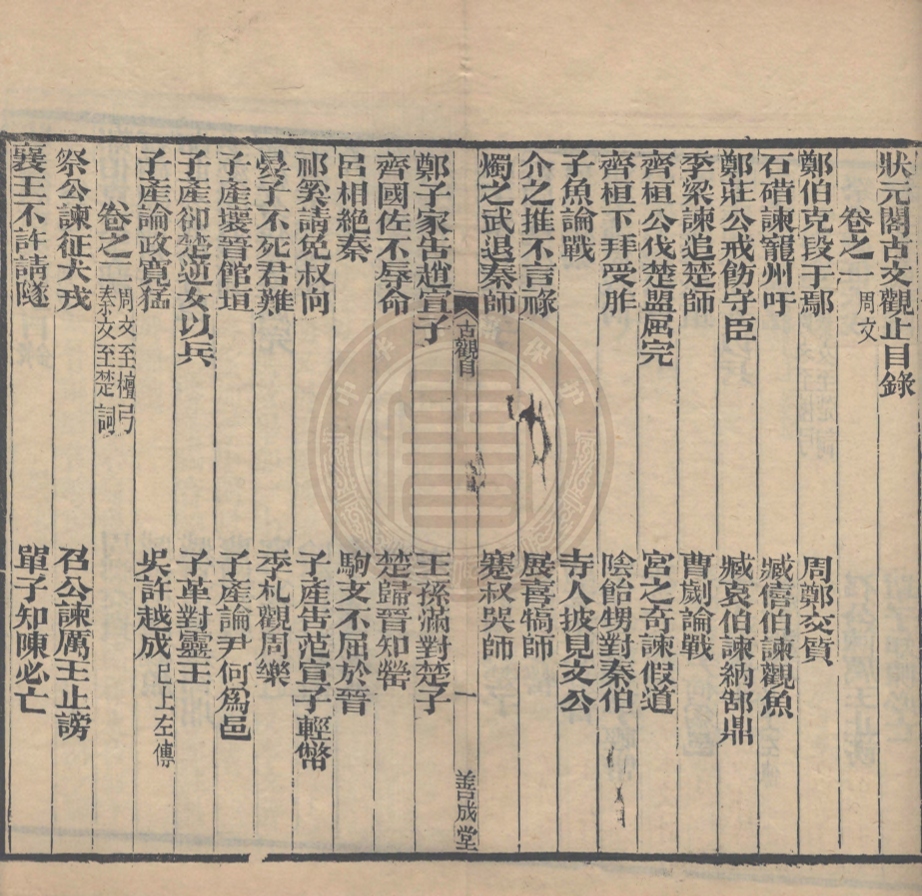 狀元閣古文觀止目錄
卷之一 周文
鄭伯克段于鄢 周鄭交質
石碏諫寵州吁 臧僖伯諫觀魚
鄭莊公戒飭守臣 臧哀伯諫納郜鼎
季梁諫追楚師 曹劌論戰
齊桓公伐楚盟屈完 宮之奇諫假道
齊桓下拜受胙 陰飴甥對秦伯
子魚論戰 寺人披見文公
介之推不言祿 展喜犒師
燭之武退秦師 蹇叔哭師
古觀目 一 善成堂
鄭子家告趙宣子 王孫滿對楚子
齊國佐不辱命 楚歸晉知罃
呂相絕秦 駒支不屈於晉
祁奚請免叔向 子產告范宣子輕幣
晏子不死君難 季札觀周樂
子產壞晉館垣 子產論尹何爲邑
子產卻楚逆女以兵 子革對靈王
子產論政寬猛 吳許越成 已上左傳
卷之二 周文至檀弓 秦文至楚詞
祭公諫征犬戎 召公諫厲王止謗
襄王不許請隧 單子知陳必亡